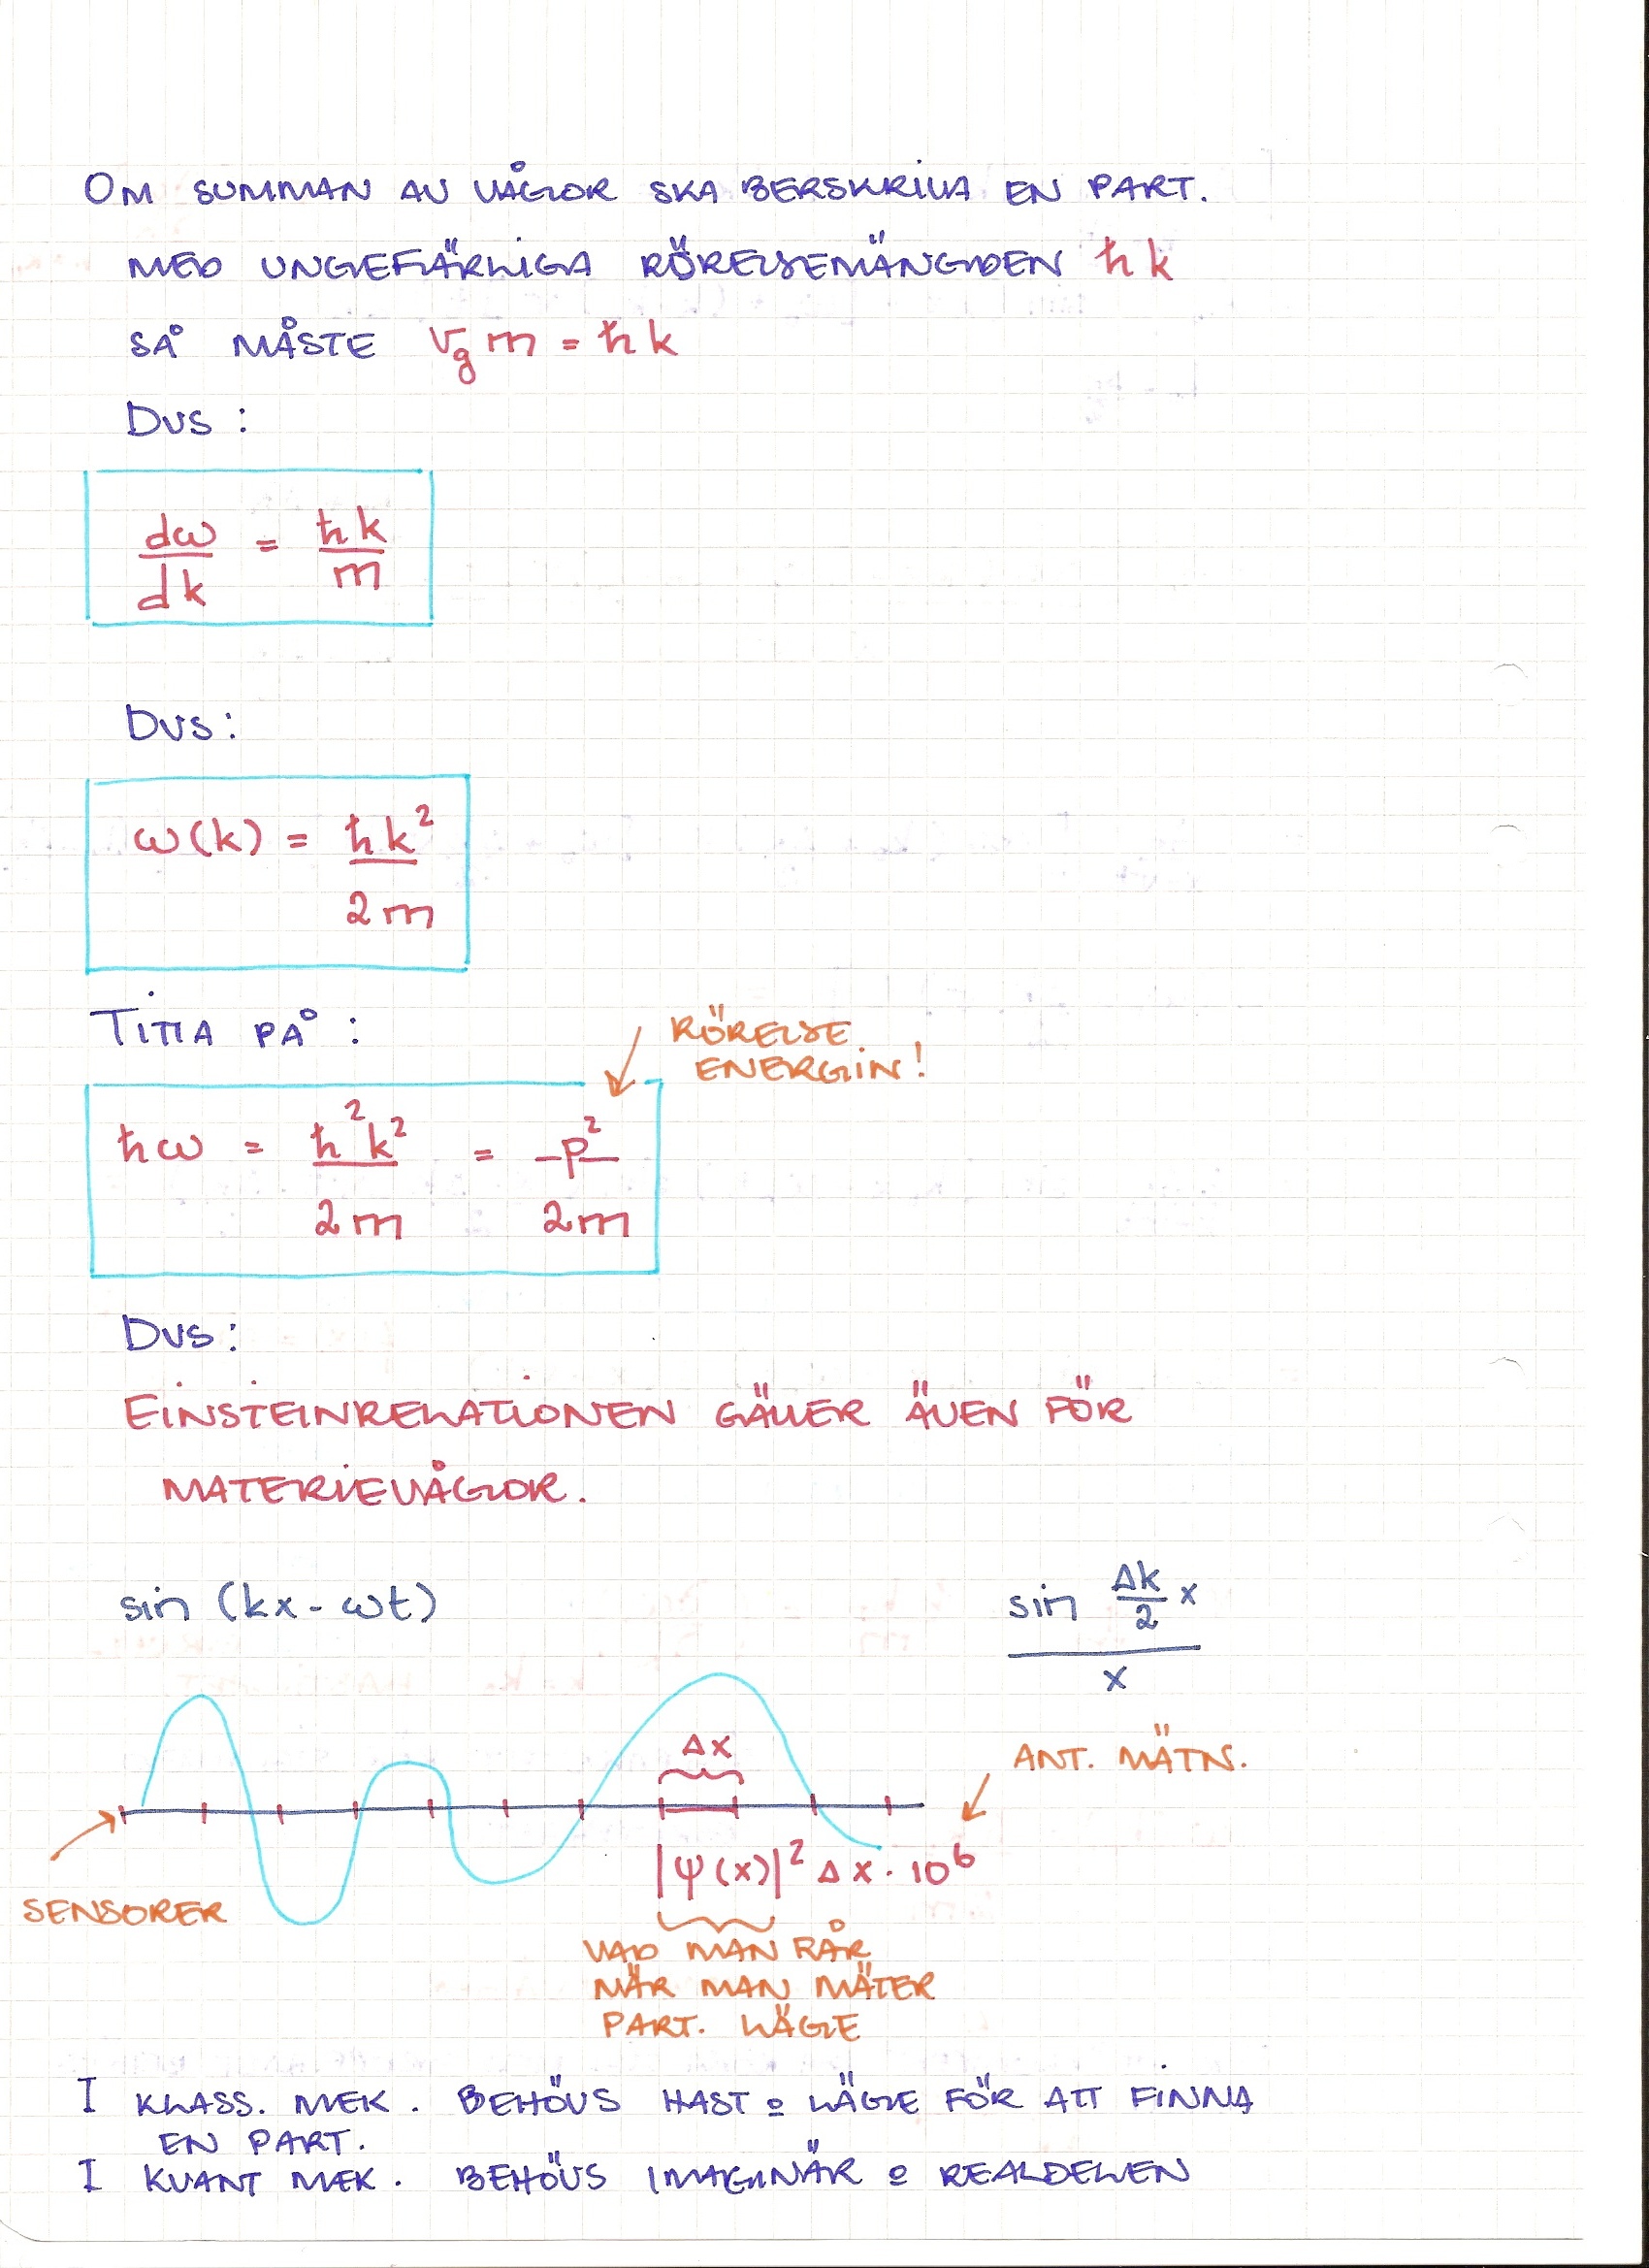 OM SUMMAN AV VÅGOR SKA BERSKRIVA EN PART.
MED UNGEFÄRLIGA RÖRELSEMÄNGDEN ħk
SÅ MÅSTE v_g m = ħk
DVS :
dω/dk = ħk/m
DVS:
ω(k) = ħk²/2m
TITTA PÅ :
RÖRELSE
ENERGIN!
ħω = ħ²k²/2m = p²/2m
DVS:
EINSTEINRELATIONEN GÄLLER ÄVEN FÖR
MATERIEVÅGOR.
sin (kx - ωt)
sin Δk/2 x / x
Δx
ANT. MÄTN.
SENSORER
|ψ(x)|² Δx · 10⁶
VAD MAN RÅR
NÄR MAN MÄTER
PART. LÄGE
I KLASS. MEK. BEHÖVS HAST o LÄGE FÖR ATT FINNA
EN PART.
I KVANT MEK. BEHÖVS IMAGINÄR o REALDELEN